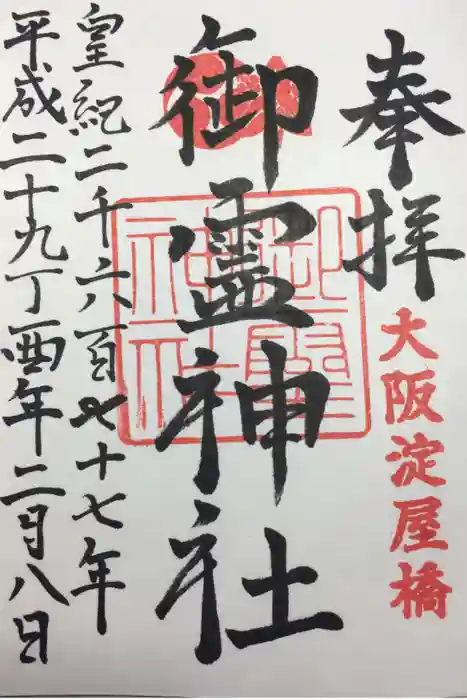 奉拝
大阪淀屋橋
御霊神社
皇紀二千六百七十七年
平成二十九丁酉年二月八日